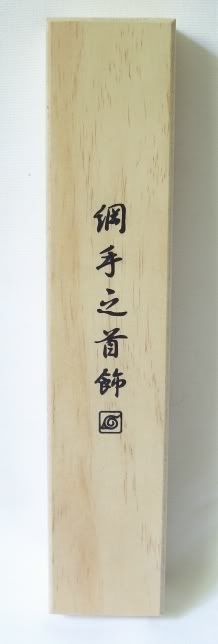 綱手之首飾